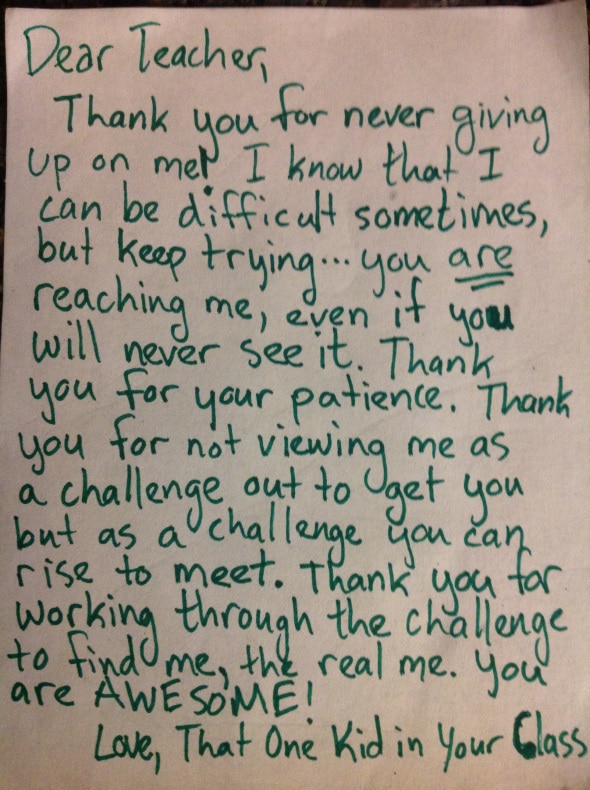 Dear Teacher,
Thank you for never giving
up on me! I know that I
can be difficult sometimes,
but keep trying... you are
reaching me, even if you
will never see it. Thank
you for your patience. Thank
you for not viewing me as
a challenge out to get you
but as a challenge you can
rise to meet. Thank you for
working through the challenge
to find me, the real me. You
are AWESOME!
Love, That One Kid in Your Class